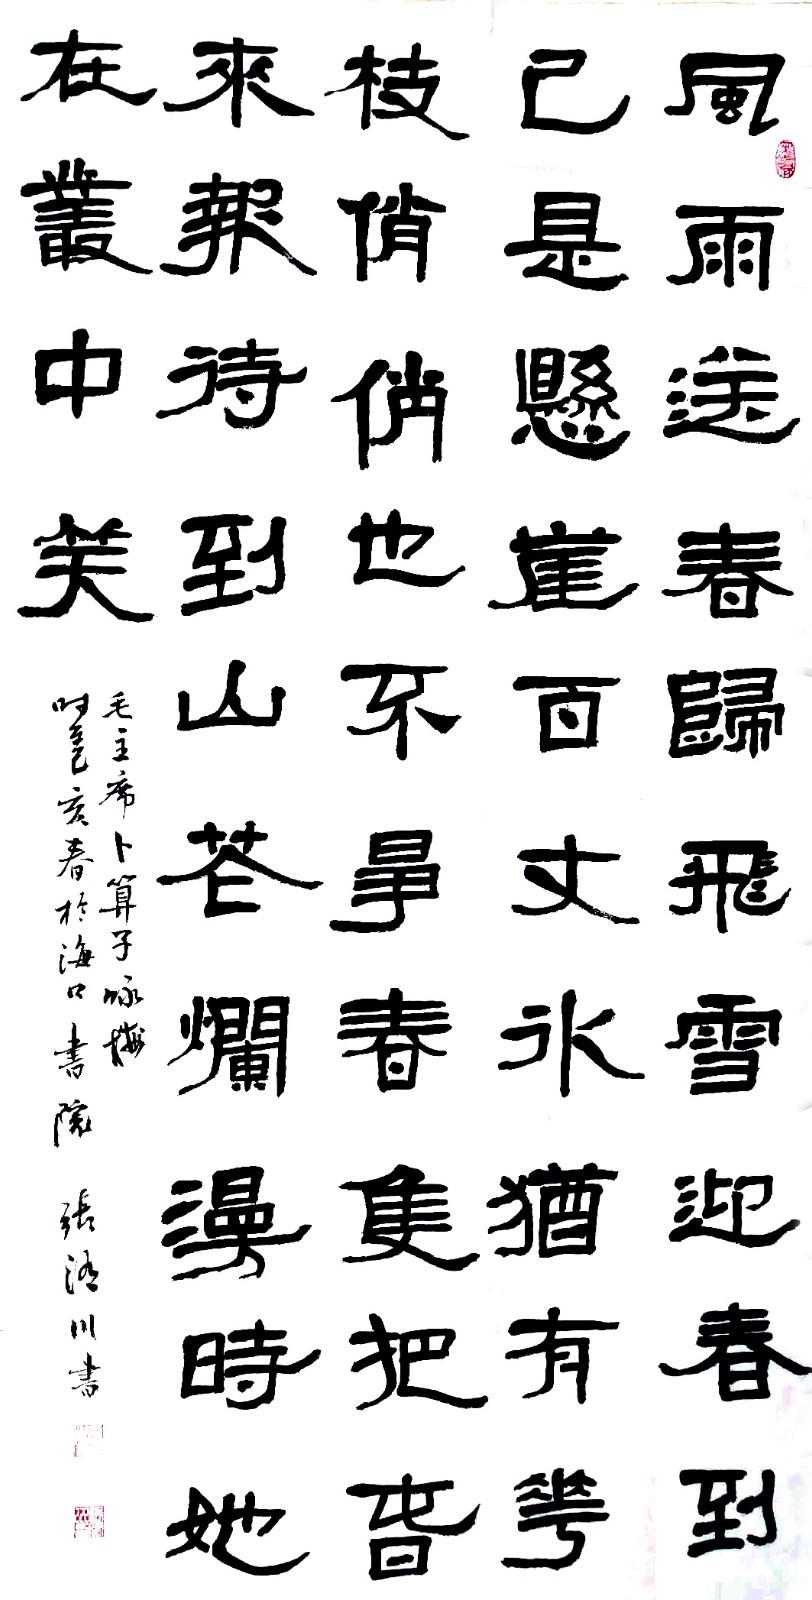 風雨送春歸飛雪迎春到
已是懸崖百丈冰猶有華
枝俏俏也不爭春隻把春
來報待到山花爛漫時她
在叢中笑
毛主席卜算子咏梅
时己亥春於海口書院 張川書